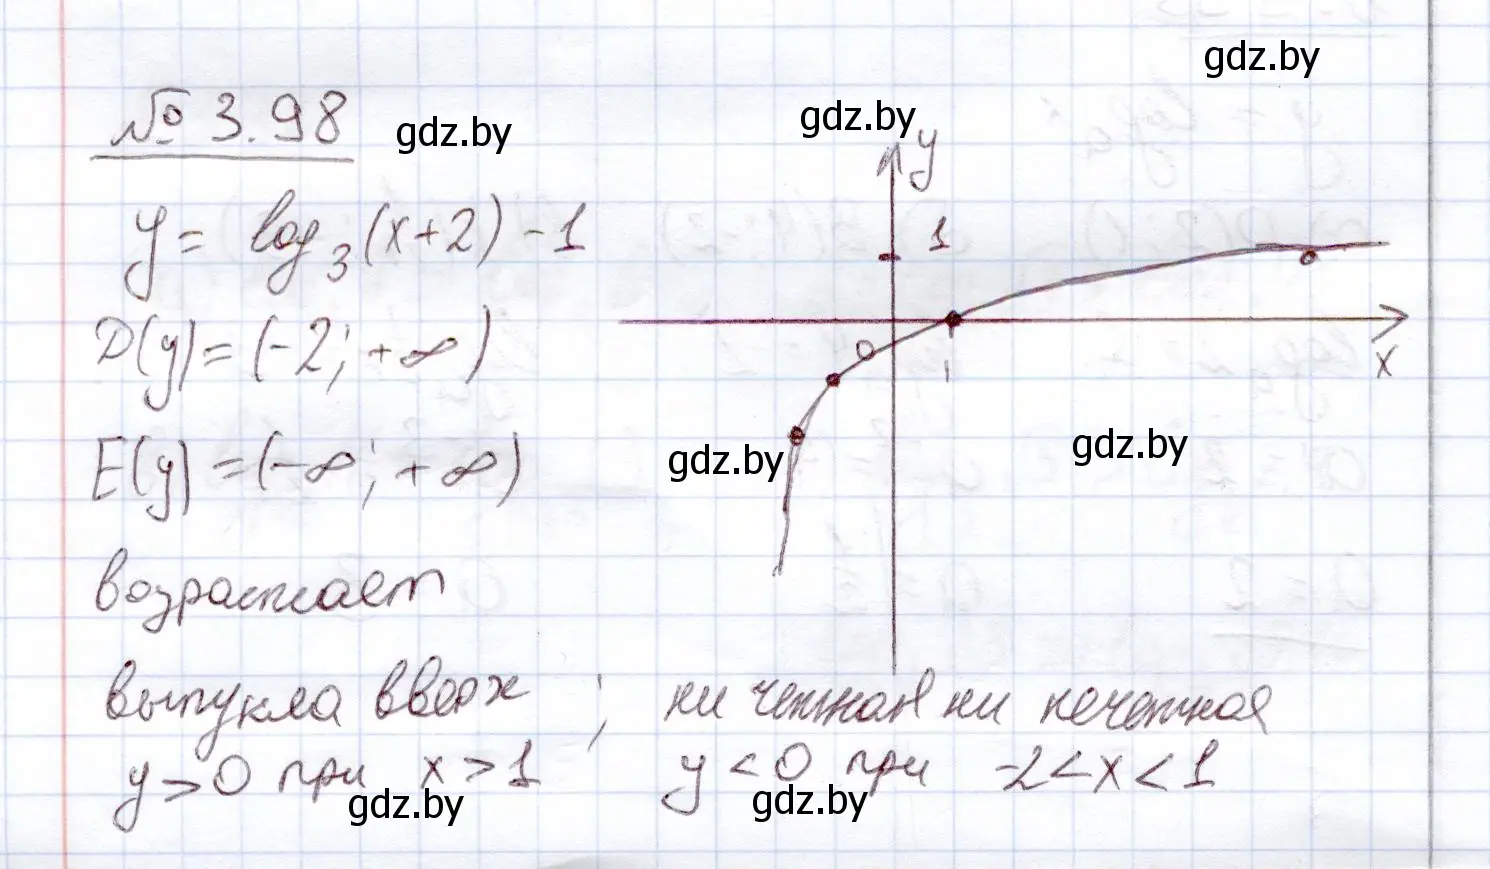 gdz.by
№ 3.98
gdz.by
gdz.by
y
y = log₃(x+2) - 1
1
D(y) = (-2; +∞)
0
1
x
E(y) = (-∞; +∞)
gdz.by
gdz.by
возрастает
выпукла вверх ; ни четная ни нечетная
y > 0 при x > 1 y < 0 при -2 < x < 1
gdz.by
gdz.by